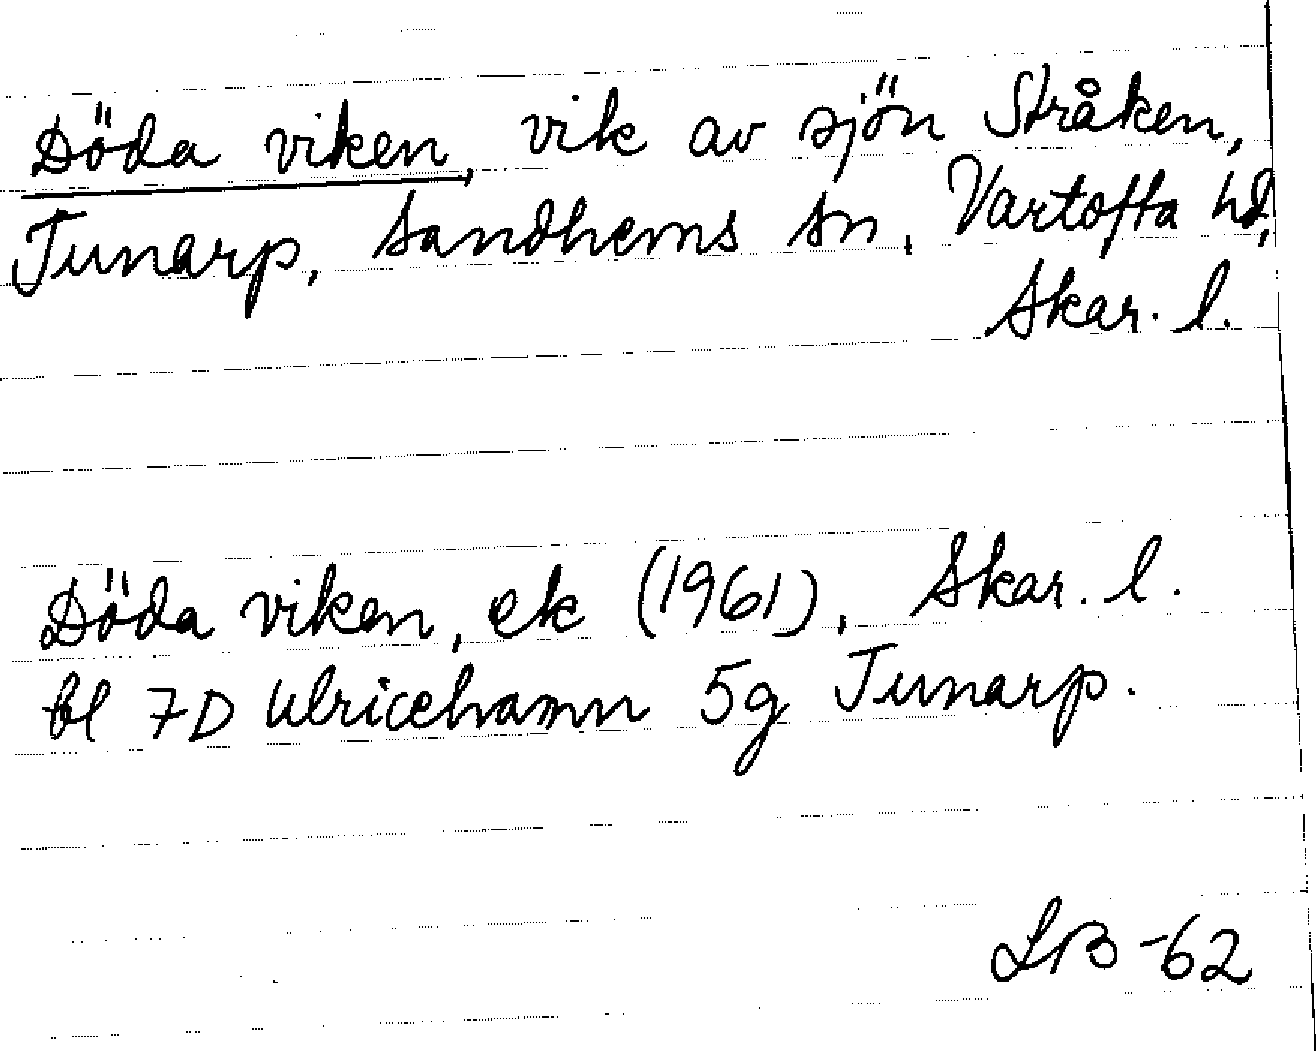 Döda viken, vik av sjön Stråken,
Tunarp, Sandhems sn, Vartofta hd,
Skar. l.
Döda viken, ek (1961), Skar. l.
bl 7D Ulricehamn 5g Tunarp.
LB-62